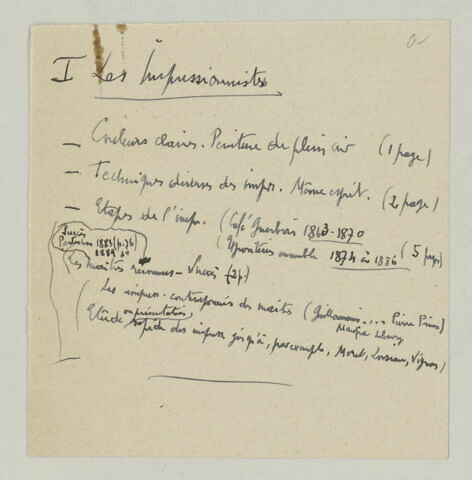 a
I Les Impressionnistes
— Couleurs claires. Peinture de plein air (1 page)
— Techniques diverses des impr. Même esprit. (2 page)
— Etapes de l'impr. (Café Guerbois 1863-1870
(Expositions ensemble 1874 à 1886 (5 pages)
Succès
Particulier 1883 (p. 76)
1884
Les maîtres reconnus - Succès (2 p.)
Les impress. contemporains des maîtres (Guillaumin ... Pierre Prins)
Maufra
ou présentation
Etude rapide des impress. jusqu'à, par exemple, Moret, Loiseau, Vignon)